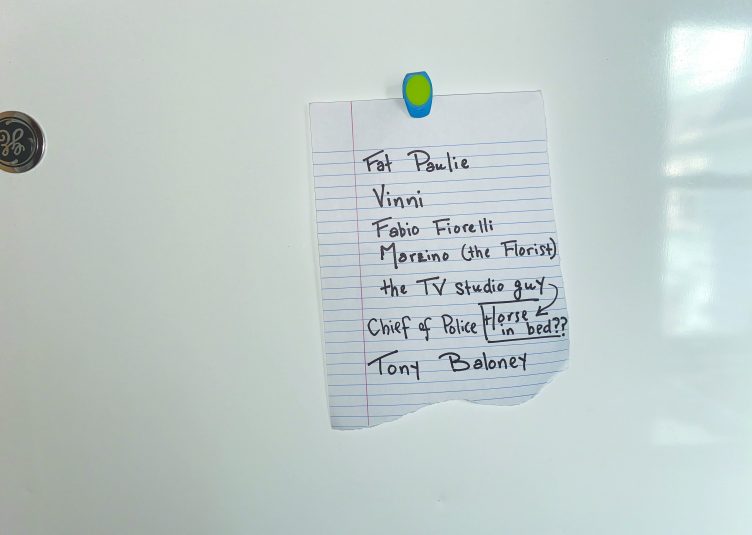 GE
Fat Paulie
Vinni
Fabio Fiorelli
Marzino (the Florist)
the TV studio guy
Chief of Police Horse
in bed??
Tony Baloney